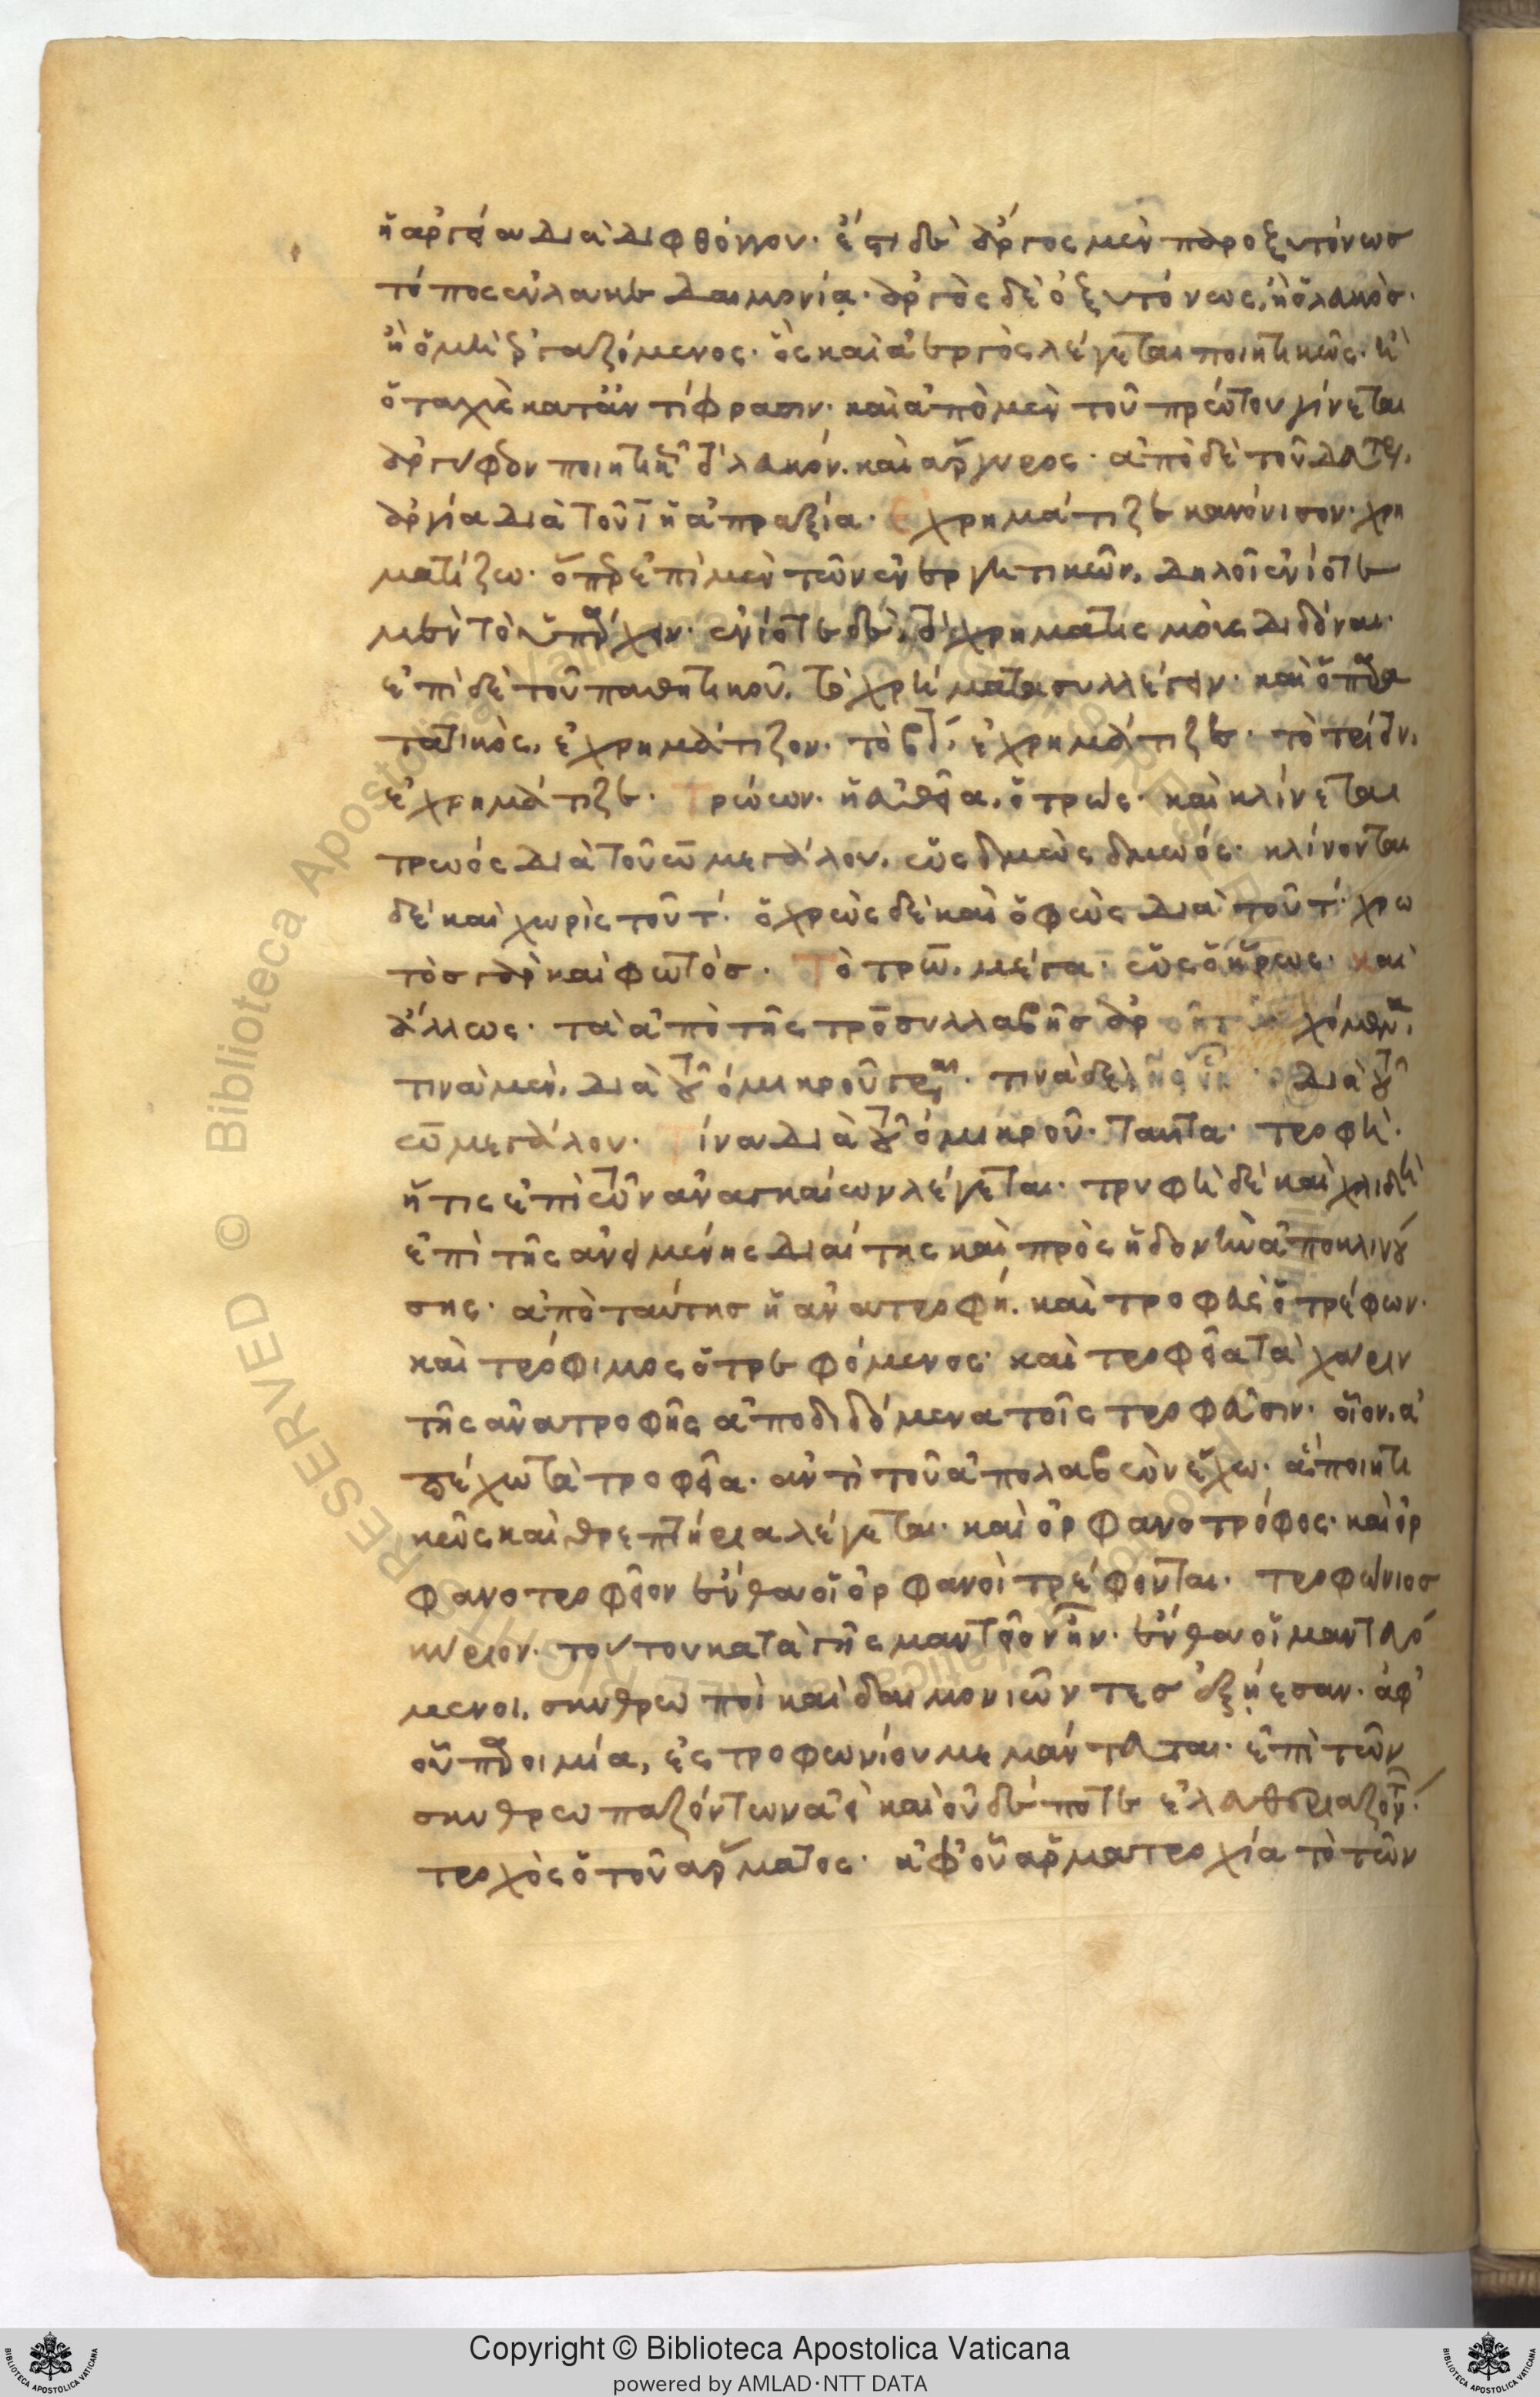 ἡ ἀργεία διὰ διφθόγγου· ἔστι δὲ ἄργος μὲν παροξυτόνως
τόπος ἐν λακεδαιμονίᾳ· ἀργὸς δὲ ὀξυτόνως, ἢ ὁ λευκός·
ἢ ὁ μὴ ἐργαζόμενος· ὃς καὶ ἀεργὸς λέγεται ποιητικῶς· ἢ
ὁ ταχὺς κατὰ ἀντίφρασιν· καὶ ἀπὸ μὲν τοῦ πρώτου γίνεται
ποιητικῶς τὸ λευκόν. καὶ ἄργυρος· ἀπὸ δὲ τοῦ δευτέρου,
ἀργία διὰ τοῦ ῑ ἡ ἀπραξία· Ἐχρημάτιζε κανόνισον· χρη
ματίζω· ὅπερ ἐπὶ μὲν τῶν ἐνεργητικῶν, δηλοῖ ἐνίοτε
μὲν τὸ ὑπάρχειν· ἐνίοτε δὲ, τὸ χρηματισμοὺς διδόναι·
ἐπὶ δὲ τοῦ παθητικοῦ, τὸ χρήματα συλλέγειν· καὶ ὁ παρα
τατικὸς, ἐχρημάτιζον· τὸ βʹ, ἐχρημάτιζες· τὸ τρίτον,
ἐχρημάτιζε· Τρώων· ἡ εὐθεῖα, ὁ τρώς· καὶ κλίνεται
τρωός διὰ τοῦ ω μεγάλου, ὡς δμὼς δμωός· κλίνονται
δὲ καὶ χωρὶς τοῦ τ· ὁ χρὼς δὲ καὶ ὁ φὼς διὰ τοῦ τ· χρω
τὸς γὰρ καὶ φωτός· Τὸ τρω, μέγα· ὡς ὁ ἥρως· καὶ
ἄλλως· τὰ ἀπὸ τῆς τρο συλλαβῆς
τινὰ μὲν, διὰ τοῦ ο μικροῦ γράφεται· τινὰ δὲ διὰ τοῦ
ω μεγάλου· Τίνα διὰ τοῦ ο μικροῦ· ταῦτα· τροφή·
ἥτις ἐπὶ τῶν ἀναγκαίων λέγεται· τρυφὴ δὲ καὶ χλιδὴ
ἐπὶ τῆς ἀνειμένης διαίτης καὶ πρὸς ἡδονὴν ἀποκλινού
σης· ἀπὸ ταύτης ἡ ἀνατροφή. καὶ τροφεὺς ὁ τρέφων·
καὶ τρόφιμος ὁ τρεφόμενος· καὶ τροφεῖα τὰ χάριν
τῆς ἀνατροφῆς ἀποδιδόμενα τοῖς τροφεῦσιν· οἷον, ἀ
πέχω τὰ τροφεῖα· ἀντὶ τοῦ ἀπολαβὼν ἔχω· ἃ ποιητι
κῶς καὶ θρεπτήρια λέγεται· καὶ ὀρφανοτρόφος· καὶ ὀρ
φανοτροφεῖον ἔνθα οἱ ὀρφανοὶ τρέφονται· τροφώνιος
κύριον· τούτου κατὰ γῆς μαντεῖον ἦν· ἔνθα οἱ μαντευό
μενοι, σκυθρωποὶ καὶ δαιμονιῶντες ἐξῄεσαν· ἀφ'
οὗ παροιμία, εἰς τροφωνίου μεμάντευται· ἐπὶ τῶν
σκυθρωπαζόντων ἀεὶ καὶ οὐδέποτε
τροχὸς ὁ τοῦ ἅρματος· ἀφ' οὗ ἁρματροχία τὸ τῶν
Biblioteca Apostolica Vaticana
Copyright © Biblioteca Apostolica Vaticana
powered by AMLAD·NTT DATA